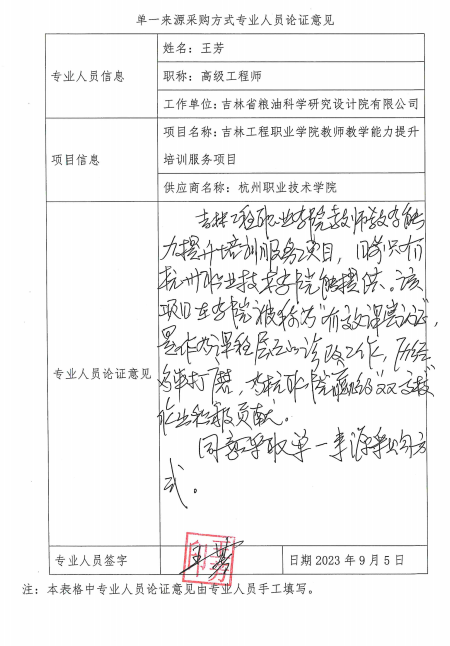 单一来源采购方式专业人员论证意见
专业人员信息
姓名：王芳
职称：高级工程师
工作单位：吉林省粮油科学研究设计院有限公司
项目信息
项目名称：吉林工程职业学院教师教学能力提升
培训服务项目
供应商名称：杭州职业技术学院
专业人员论证意见
吉林工程职业学院教师教学能
力提升培训服务项目，目前只有
杭州职业技术学院能提供。该
项目在学院被称为“有效课堂认证”，
是作为课程层面的诊改工作，历经
多年打磨，为杭职院 的“双 ”
作出积极贡献。
同意采取单一来源采购方
式。
专业人员签字
王芳
日期 2023 年 9 月 5 日
注：本表格中专业人员论证意见由专业人员手工填写。